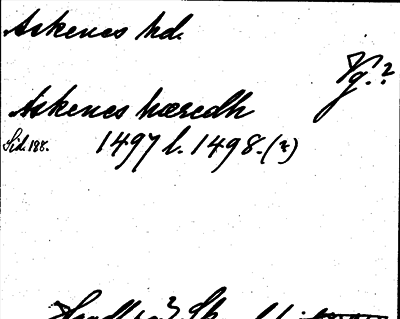 Askenes hd.
Vg.?
Askenes hæredh
Sid. 188. 1497 l. 1498. (?)